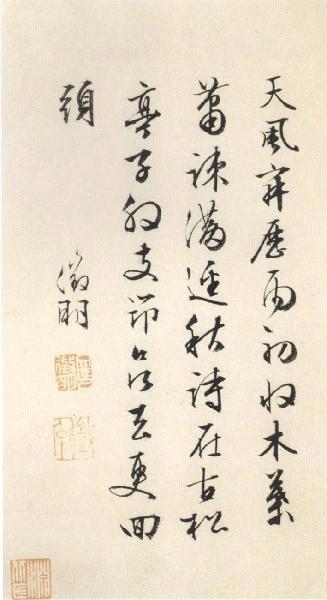 天風寂歷雨初收木葉
蕭疎滿逕秋詩在古松
亭子外支筇去更回
頭
徵明